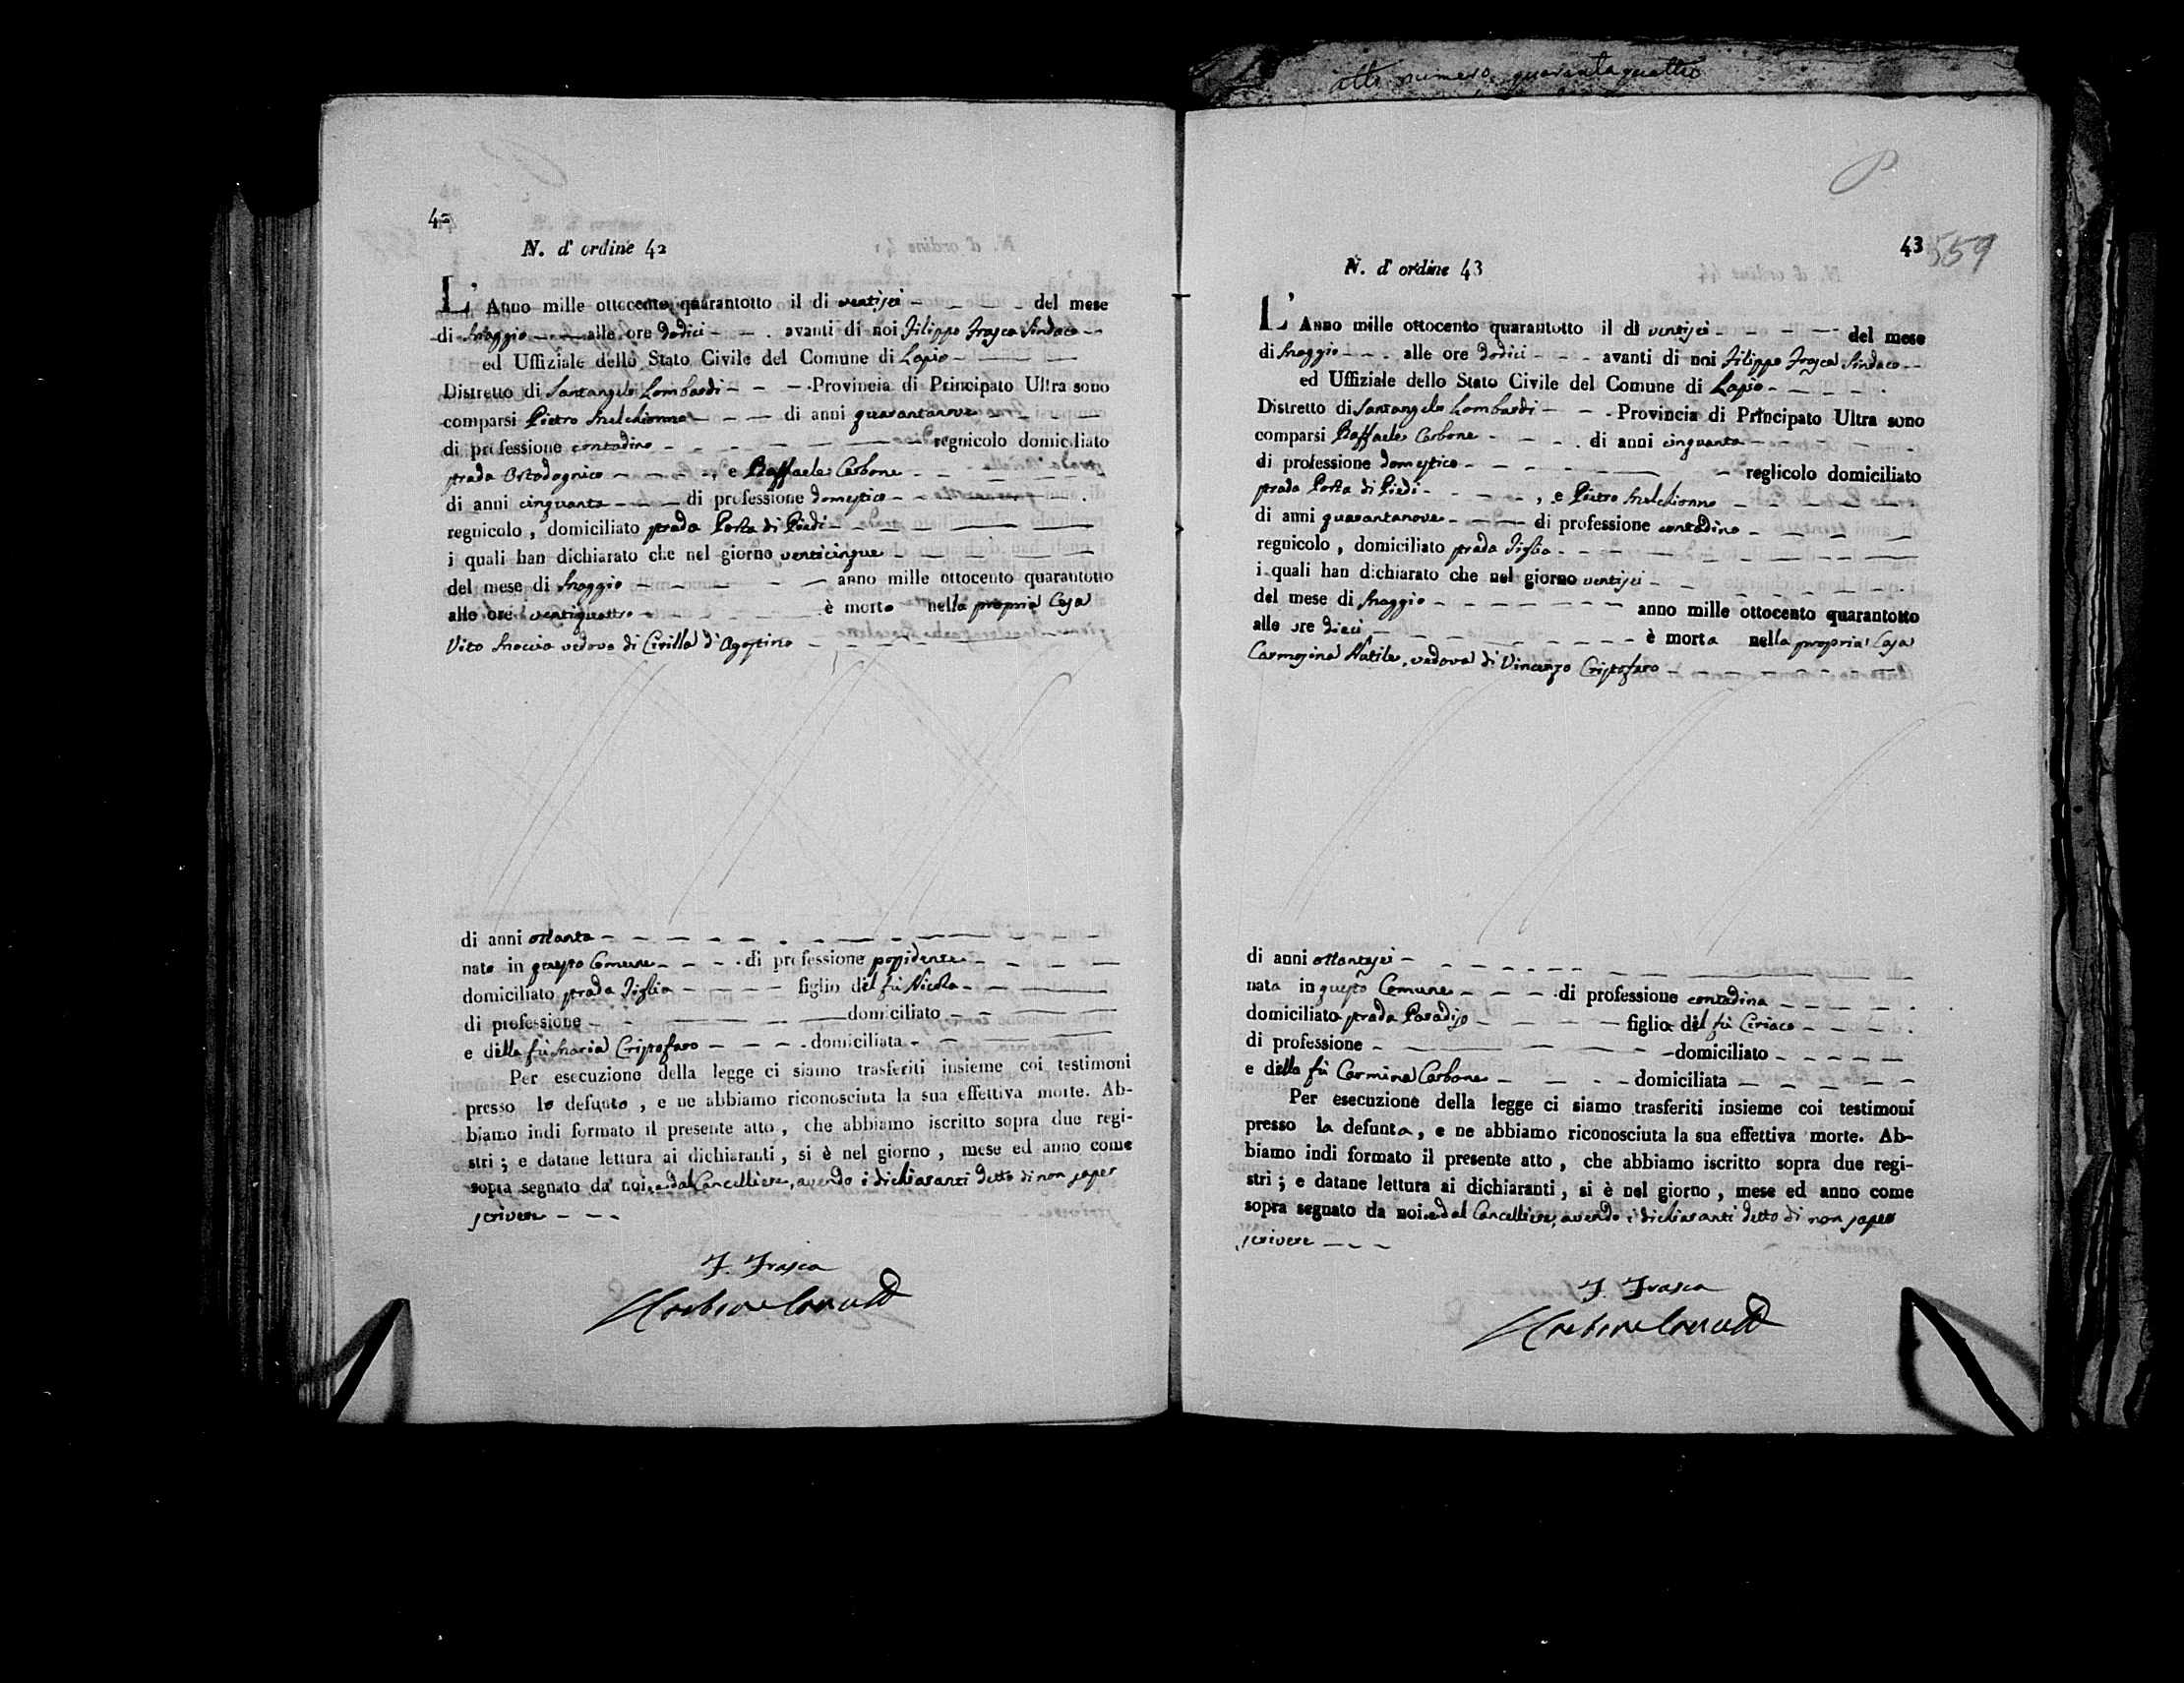 atto numero quarantaquattro
42
N. d' ordine 42
L' Anno mille ottocento quarantotto il di ventisei del mese
di Maggio alle ore dodici avanti di noi Filippo Frasca Sindaco
ed Uffiziale dello Stato Civile del Comune di Lapio
Distretto di Santangelo Lombardi Provincia di Principato Ultra sono
comparsi Pietro Melchionno di anni quarantanove
di professione contadino regnicolo domiciliato
strada e Raffaele Carbone
di anni cinquanta di professione domestico
regnicolo, domiciliato strada Porta di Piedi
i quali han dichiarato che nel giorno venticinque
del mese di Maggio anno mille ottocento quarantotto
alle ore ventiquattro è morto nella propria Casa
Vito Moccia vedovo di Civilla d'Agostino
di anni ottanta
nato in questo Comune di professione possidente
domiciliato strada Figlia figlio del fù Nicola
di professione domiciliato
e della fù Maria Cristofaro domiciliata
Per esecuzione della legge ci siamo trasferiti insieme coi testimoni
presso lo defunto, e ne abbiamo riconosciuta la sua effettiva morte. Ab-
biamo indi formato il presente atto, che abbiamo iscritto sopra due regi-
stri; e datane lettura ai dichiaranti, si è nel giorno, mese ed anno come
sopra segnato da noi, e dal Cancelliere, avendo i dichiaranti detto di non saper
scrivere
F. Frasca
43
559
N. d' ordine 43
L' Anno mille ottocento quarantotto il di ventisei del mese
di Maggio alle ore dodici avanti di noi Filippo Frasca Sindaco
ed Uffiziale dello Stato Civile del Comune di Lapio
Distretto di Santangelo Lombardi Provincia di Principato Ultra sono
comparsi Raffaele Carbone di anni cinquanta
di professione domestico reglicolo domiciliato
strada Porta di Piedi, e Pietro Melchionno
di anni quarantanove di professione contadino
regnicolo, domiciliato strada Figlia
i quali han dichiarato che nel giorno ventisei
del mese di Maggio anno mille ottocento quarantotto
alle ore dieci è morta nella propria Casa
Carmosina Natile, vedova di Vincenzo Cristofaro
di anni ottantasei
nata in questo Comune di professione contadina
domiciliato strada Paradiso figlia del fù Ciriaco
di professione domiciliato
e della fù Carmina Carbone domiciliata
Per esecuzione della legge ci siamo trasferiti insieme coi testimoni
presso la defunta, e ne abbiamo riconosciuta la sua effettiva morte. Ab-
biamo indi formato il presente atto, che abbiamo iscritto sopra due regi-
stri; e datane lettura ai dichiaranti, si è nel giorno, mese ed anno come
sopra segnato da noi, e dal Cancelliere, avendo i dichiaranti detto di non saper
scrivere
F. Frasca